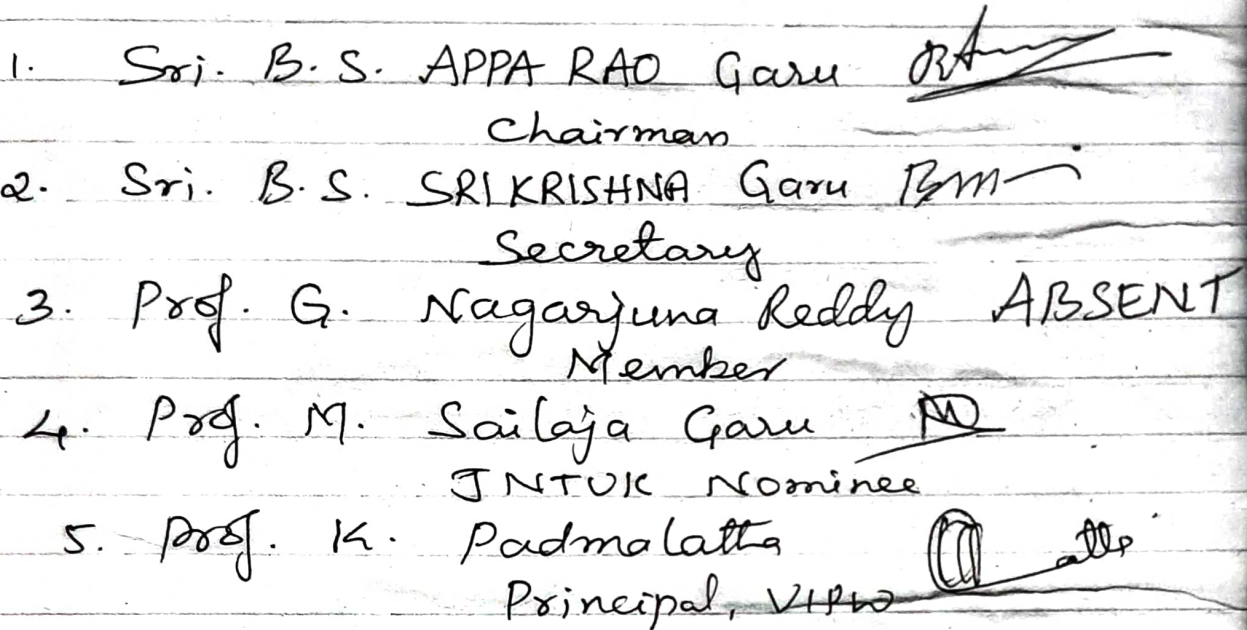 1. Sri. B. S. APPA RAO Garu
Chairman
2. Sri. B. S. SRIKRISHNA Garu
Secretary
3. Prof. G. Nagarjuna Reddy ABSENT
Member
4. Prof. M. Sailaja Garu
JNTUK Nominee
5. Prof. K. Padmalatha
Principal, VIPW